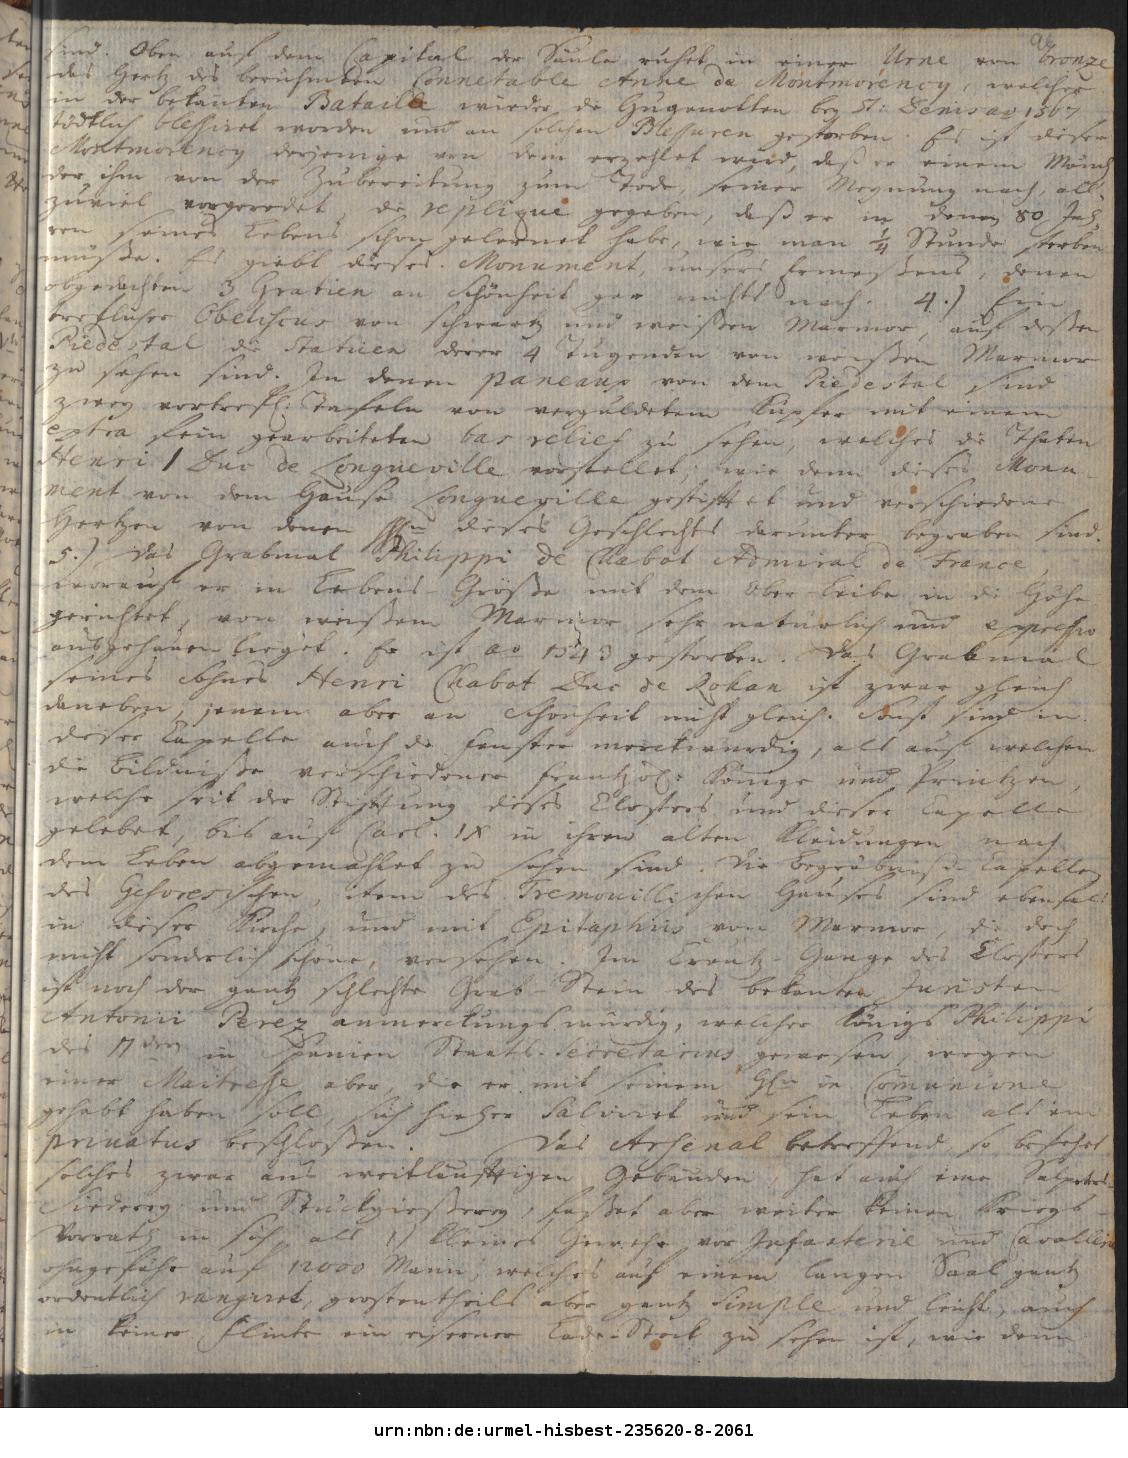 sind. Oben auf dem Capital der Säule ruhet in einer Urne von bronze
das Hertz des berühmten Connetable Anne de Montmorency, welcher
in der bekanten Bataille wieder die Hugenotten bey St: Denis ao 1567
tödtlich blessiret worden und an solchen Blessuren gestorben. Es ist dieser
Montmorency derjenige von dem erzehlet wird, daß er einem Mönch
der ihm von der Zubereitung zum Tode, seiner Meynung nach, all
zuviel vorgeredet, die replique gegeben, daß er in denen 80 Jah
ren seines Lebens schon gelernet habe, wie man 1/4 Stunde sterben
müße. Es giebt dieses Monument, unsers Ermeßens, denen
obgedachten 3 Gratien an Schönheit gar nichts nach. 4.) Ein
trefflicher Obeliscus von schwartz und weißen Marmor, auf deßen
Piedestal die Statuen derer 4 Tugenden von weißen Marmor
zu sehen sind. In denen paneaux von dem Piedestal sind
zwey vortrefl: Tafeln von verguldetem Kupfer mit einem
extra fein gearbeiteten bas relief zu sehen, welches die Thaten
Henri I Duc de Longueville vorstellet; wie denn dieses Monu-
ment von dem Hause Longueville gestifftet und verschiedene
Hertzen von denen dieses Geschlechts darunter begraben sind.
5.) Das Grabmal Philippi de Chabot Admiral de France,
worauf er in Lebens-Größe mit dem Ober-Leibe in die Höhe
gerichtet, von weißem Marmor sehr natürlich und
ausgehauen lieget. Er ist ao 1543 gestorben. Das Grabmal
seines Sohnes Henri Chabot Duc de Rohan ist zwar gleich
daneben, jenem aber an Schönheit nicht gleich. Sonst sind in
dieser Capelle auch die Fenster merckwürdig, als auf welchen
die Bildniße verschiedener Frantzös: Könige und Printzen,
welche seit der Stifftung dieses Closters und dieser Capelle
gelebet, bis auf Carl. IX in ihren alten Kleidungen nach
dem Leben abgemahlet zu sehen sind. Die Begräbniß-Capellen
des Gesvresischen, item des Tremouillischen Hauses sind ebenfals
in dieser Kirche, und mit Epitaphiis von Marmor, die doch
nicht sonderlich schöne, versehen. Im Creutz-Gange des Closters
ist noch der gantz schlechte Grab-Stein des bekanten Juristen
Antonii Perez anmerckungswürdig, welcher Königs Philippi
des II den in Spanien Staats-Secretarius gewesen, wegen
einer Maitresse aber, die er mit seinem HEn in Communione
gehabt haben soll, sich hieher salviret und sein Leben als ein
privatus beschloßen. Das Arsenal betreffend, so bestehet
solches zwar aus weitläufftigen Gebäuden, hat auch eine Salpeter-
Siederey und Stückgießerey, faßet aber weiter keinen Kriegs-
Vorrath in sich, als 1) kleines Gewehr vor Infanterie und Cavallerie
ohngefähr auf 12000 Mann, welches auf einem langen Saal gantz
ordentlich rangiret, grostentheils aber gantz simple und leicht, auch
in keiner Flinte ein eiserner Lade-Stock zu sehen ist, wie denn
urn:nbn:de:urmel-hisbest-235620-8-2061